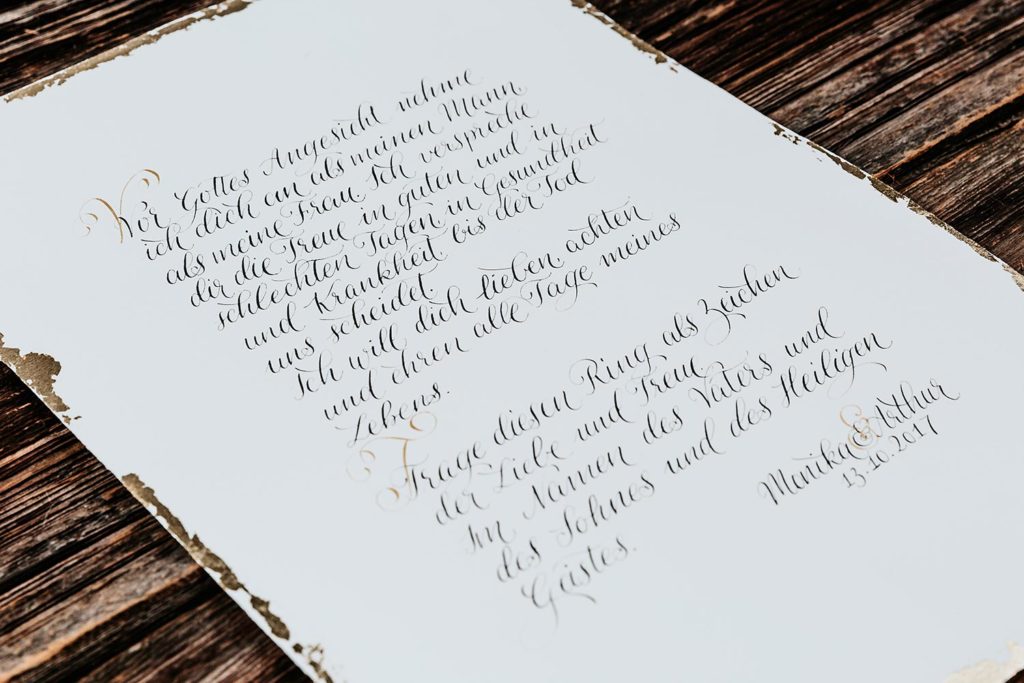 Vor Gottes Angesicht nehme
ich dich an als meinen Mann
als meine Frau Ich verspreche
dir die Treue in guten und in
schlechten Tagen in Gesundheit
und Krankheit bis der Tod
uns scheidet
Ich will dich lieben achten
und ehren alle Tage meines
Lebens.
Trage diesen Ring als Zeichen
der Liebe und Treue
Im Namen des Vaters und
des Sohnes und des Heiligen
Geistes.
Manika & Arthur
13.10.2017